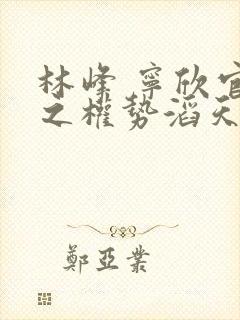 林峰 寧欣官
之權勢滔天
鄭亞業